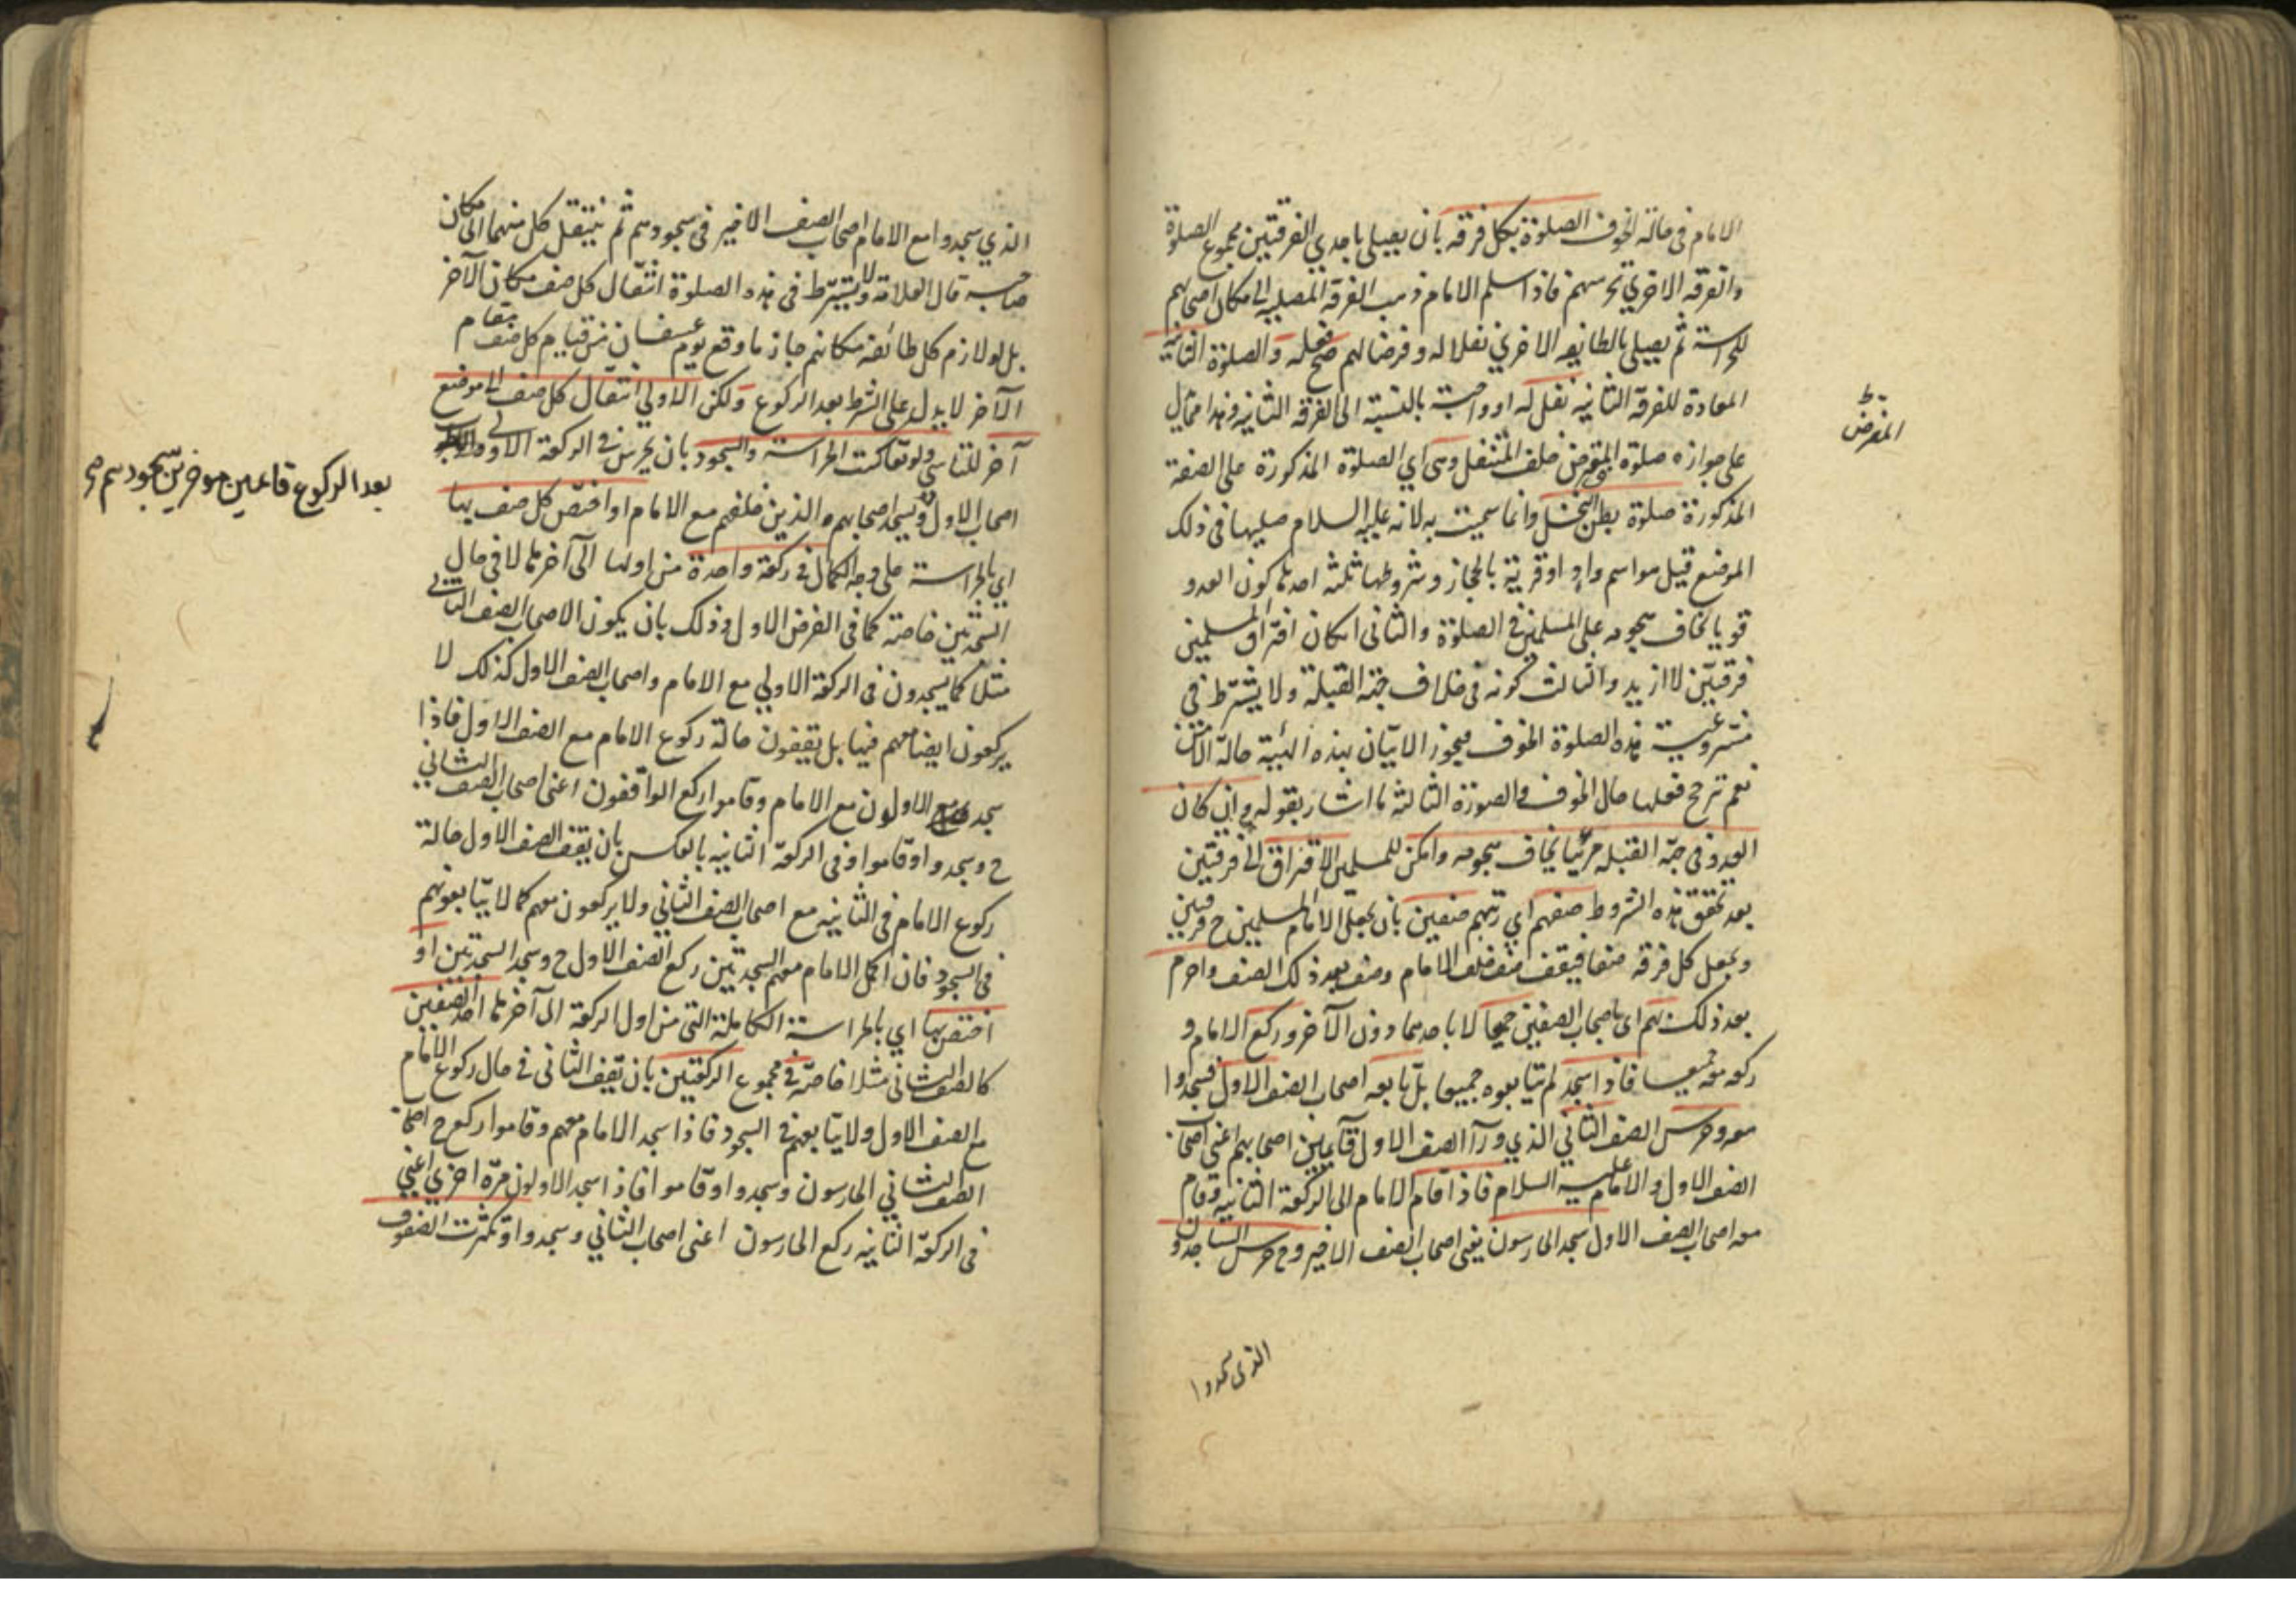 الامام في حالة الخوف الصلوة بكل فرقه بان يصلي باحدي الفرقتين مجموع الصلوة
والفرقه الاخري تحرسهم فاذا سلم الامام ذهب الفرقة المصليه الى مكان اصحابهم
للحراسة ثم يصلي بالطايفه الاخري نفلا له وفرضا لهم صح فعله والصلوة الثانيه
المعادة للفرقة الثانيه نفل له او واجبة بالنسبة الى الفرقه الثانيه وهذا مما يدل
على جوازه صلوة المفترض خلف المتنفل وهي اي الصلوة المذكورة على الصفة
المذكورة صلوة بطن النخل وانما سميت به لانه عليه السلام صليها في ذلك
الموضع قيل هو اسم واد او قرية بالحجاز وشروطها ثلثه احدها كون العدو
قويا يخاف هجومه على المسلمين في الصلوة والثاني امكان افتراق المسلمين
فرقتين لا ازيد والثالث كونه في خلاف جهة القبلة ولا يشترط في
مشروعية هذه الصلوة الخوف فيجوز الاتيان بهذه الهيئة حالة الامن
نعم ترجح فعلها حال الخوف والصورة الثالثه ما اشار بقوله وان كان
العدو في جهة القبله مرئيا يخاف هجومه وامكن للمسلمين الافتراق الى فرقتين
بعد تحقق هذه الشروط صفهم اي رتبهم صفين بان يجعل الامام المسلمين ح فرقتين
ويجعل كل فرقه صفا فيقف صف خلف الامام وصف بعد ذلك الصف واحرم
بعد ذلك بهم اي باصحاب الصفين جميعا لا باحدهما دون الآخر وركع الامام و
ركعو معه جميعا فاذا سجد لم يتابعوه جميعا بل تابعه اصحاب الصف الاول فسجدوا
معه وحرس الصف الثاني الذي ورآ الصف الاول قآيمين اصحابهم اعني اصحاب
الصف الاول والامام عليه السلام فاذا قام الامام الى الركعة الثانيه وقام
معه اصحاب الصف الاول سجد الحارسون يعني اصحاب الصف الاخير وح حرس الساجدون
الذي سجدوا
المفترض
الذي سجدوا مع الامام اصحاب الصف الاخير في سجودهم ثم ينتقل كل منهما الى مكان
صاحبه قال العلامة ولا يشترط في هذه الصلوة انتقال كل صف مكان الآخر
بل لو لازم كل طائفة مكانهم جاز ما وقع يوم عسفان من قيام كل صف مقام
الآخر لا يدل على الشرط بعد الركوع ولكن الاولي انتقال كل صف الى موضع
آخر للتاسي ولو تعاكست الحراسة والسجود بان يحرس في الركعة الاولى
اصحاب الاول ويسجد اصحابهم والذين خلفهم مع الامام او اختص كل صف بها
اي بالحراسة على وجه الكمال في ركعة واحدة من اولها الى آخرها لا في حال
السجدتين خاصة كما في الفرض الاول وذلك بان يكون الاصحاب الصف الثاني
مثلا كما يسجدون في الركعة الاولي مع الامام واصحاب الصف الاول كذلك لا
يركعون ايضا معهم فيها بل يقفون حالة ركوع الامام مع الصف الاول فاذا
سجد الاولون مع الامام وقاموا ركع الواقفون اعني اصحاب الصف الثاني
ح وسجدوا وقاموا وفي الركعة الثانيه بالعكس بان يقف الصف الاول حالة
ركوع الامام في الثانيه مع اصحاب الصف الثاني ولا يركعون معهم كما لا يتابعونهم
في السجود فان اكمل الامام معهم السجدتين ركع الصف الاول ح وسجد السجدتين او
اختص بها اي بالحراسة الكاملة التي من اول الركعة الى آخرها احد الصفين
كالصف الثاني مثلا خاصة في مجموع الركعتين بان يقف الثاني في حال ركوع الامام
مع الصف الاول ولا يتابعهم في السجود فاذا سجد الامام معهم وقاموا ركع ح اصحاب
الصف الثاني الحارسون وسجدوا وقاموا فاذا سجد الاولون مرة اخري اعني
في الركعة الثانيه ركع الحارسون اعني اصحاب الثاني وسجدوا او تكثرت الصفوف
بعد الركوع قائمين موخرين سجودهم صح